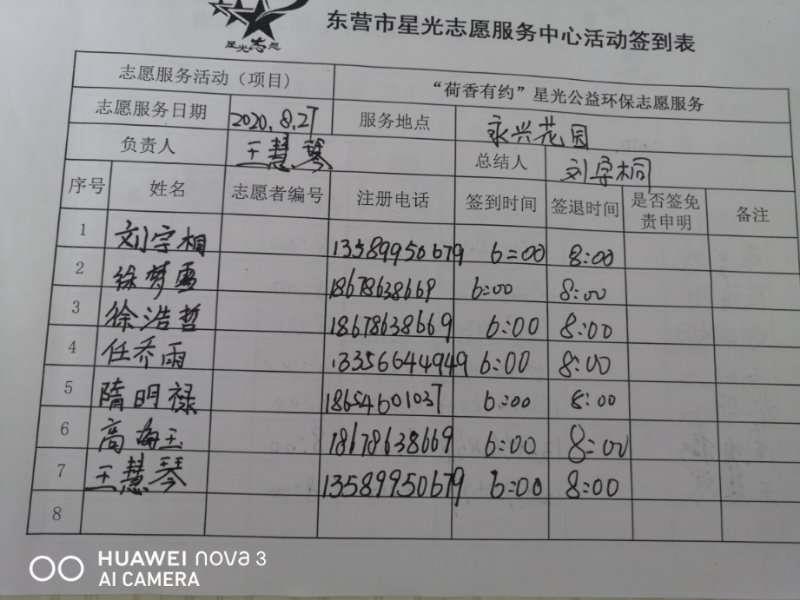 星光志愿
东营市星光志愿服务中心活动签到表
志愿服务活动（项目） “荷香有约”星光公益环保志愿服务
志愿服务日期 2020.8.27 服务地点 永兴花园
负责人 王慧琴 总结人 刘宇桐
序号 姓名 志愿者编号 注册电话 签到时间 签退时间 是否签免责申明 备注
1 刘宇桐 13589950679 6:00 8:00
2 徐梦雪 18678638669 6:00 8:00
3 徐浩哲 18678638669 6:00 8:00
4 任乔雨 13356644949 6:00 8:00
5 隋明禄 18654601037 6:00 8:00
6 高海玉 18678638669 6:00 8:00
7 王慧琴 13589950679 6:00 8:00
8
HUAWEI nova 3
AI CAMERA